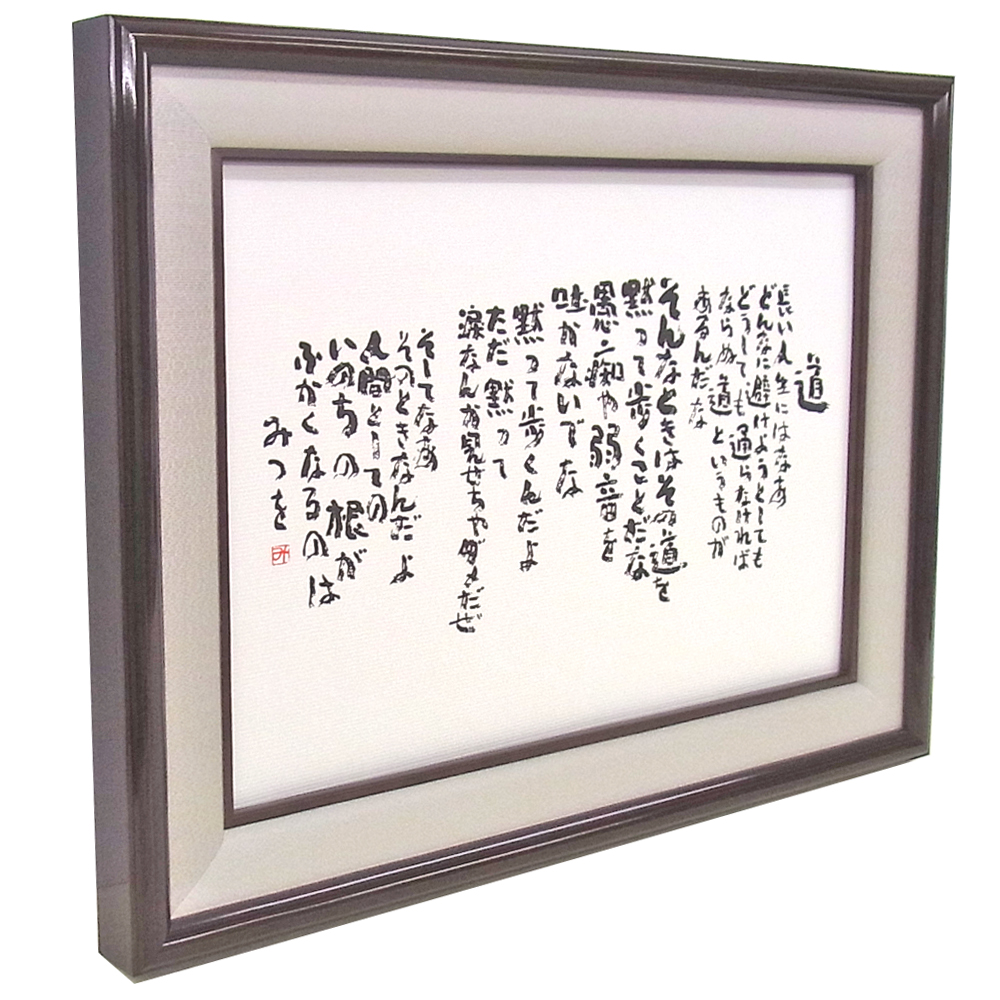 道
長い人生にはなあ
どんなに避けようとしても
どうしても通らなければ
ならぬ道というものが
あるんだな
そんなときはその道を
黙って歩くことだな
愚痴や弱音を
吐かないでな
黙って歩くんだよ
ただ黙って
涙なんか見せちゃダメだぜ
そしてなあ
そのときなんだよ
人間としての
いのちの根が
ふかくなるのは
みつを
み